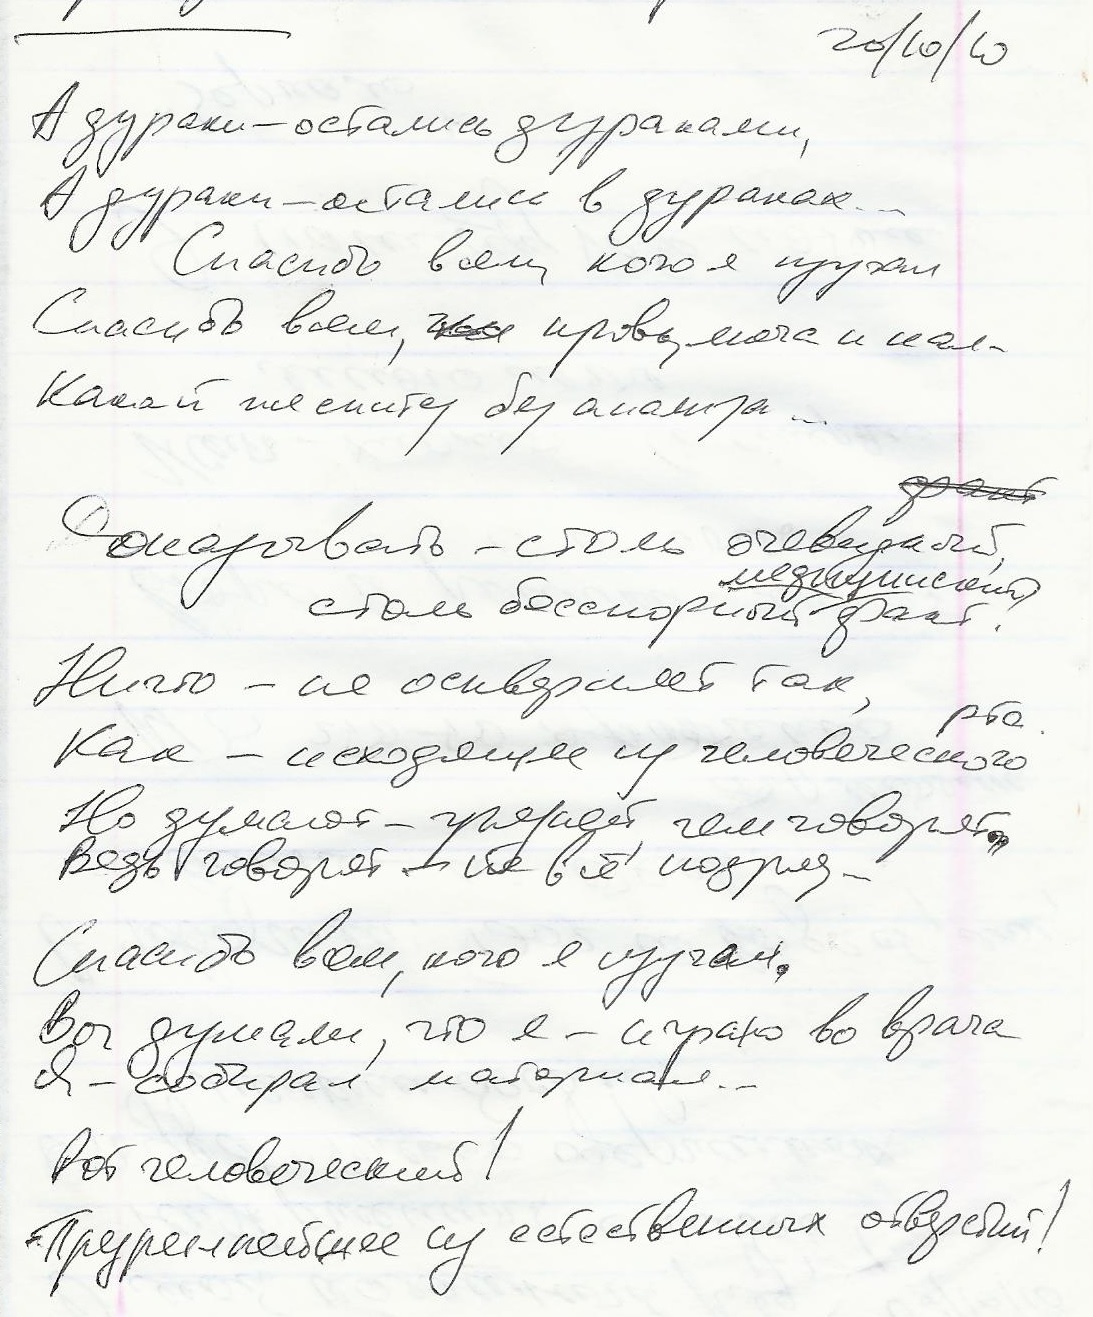 20/10/10
А дураки – остались дураками,
А дураки – остались в дураках...
Спасибо всем, кого я изучал
Спасибо всем, кровь, моча и кал –
Какай же
без анализа...
факт
Доказывать – столь очевидный,
медицинский
столь бесспорный факт.
Ничто – не оскверняет так,
рта.
Как – исходящее из человеческого
Но думают – грязней, чем говорят,
Ведь говорят – не всё подряд –
Спасибо всем, кого я изучал,
Вы думали, что я – играю во врача
Я – собирал материал...
Рот человеческий!
– Презреннейшее из естественных отверстий!